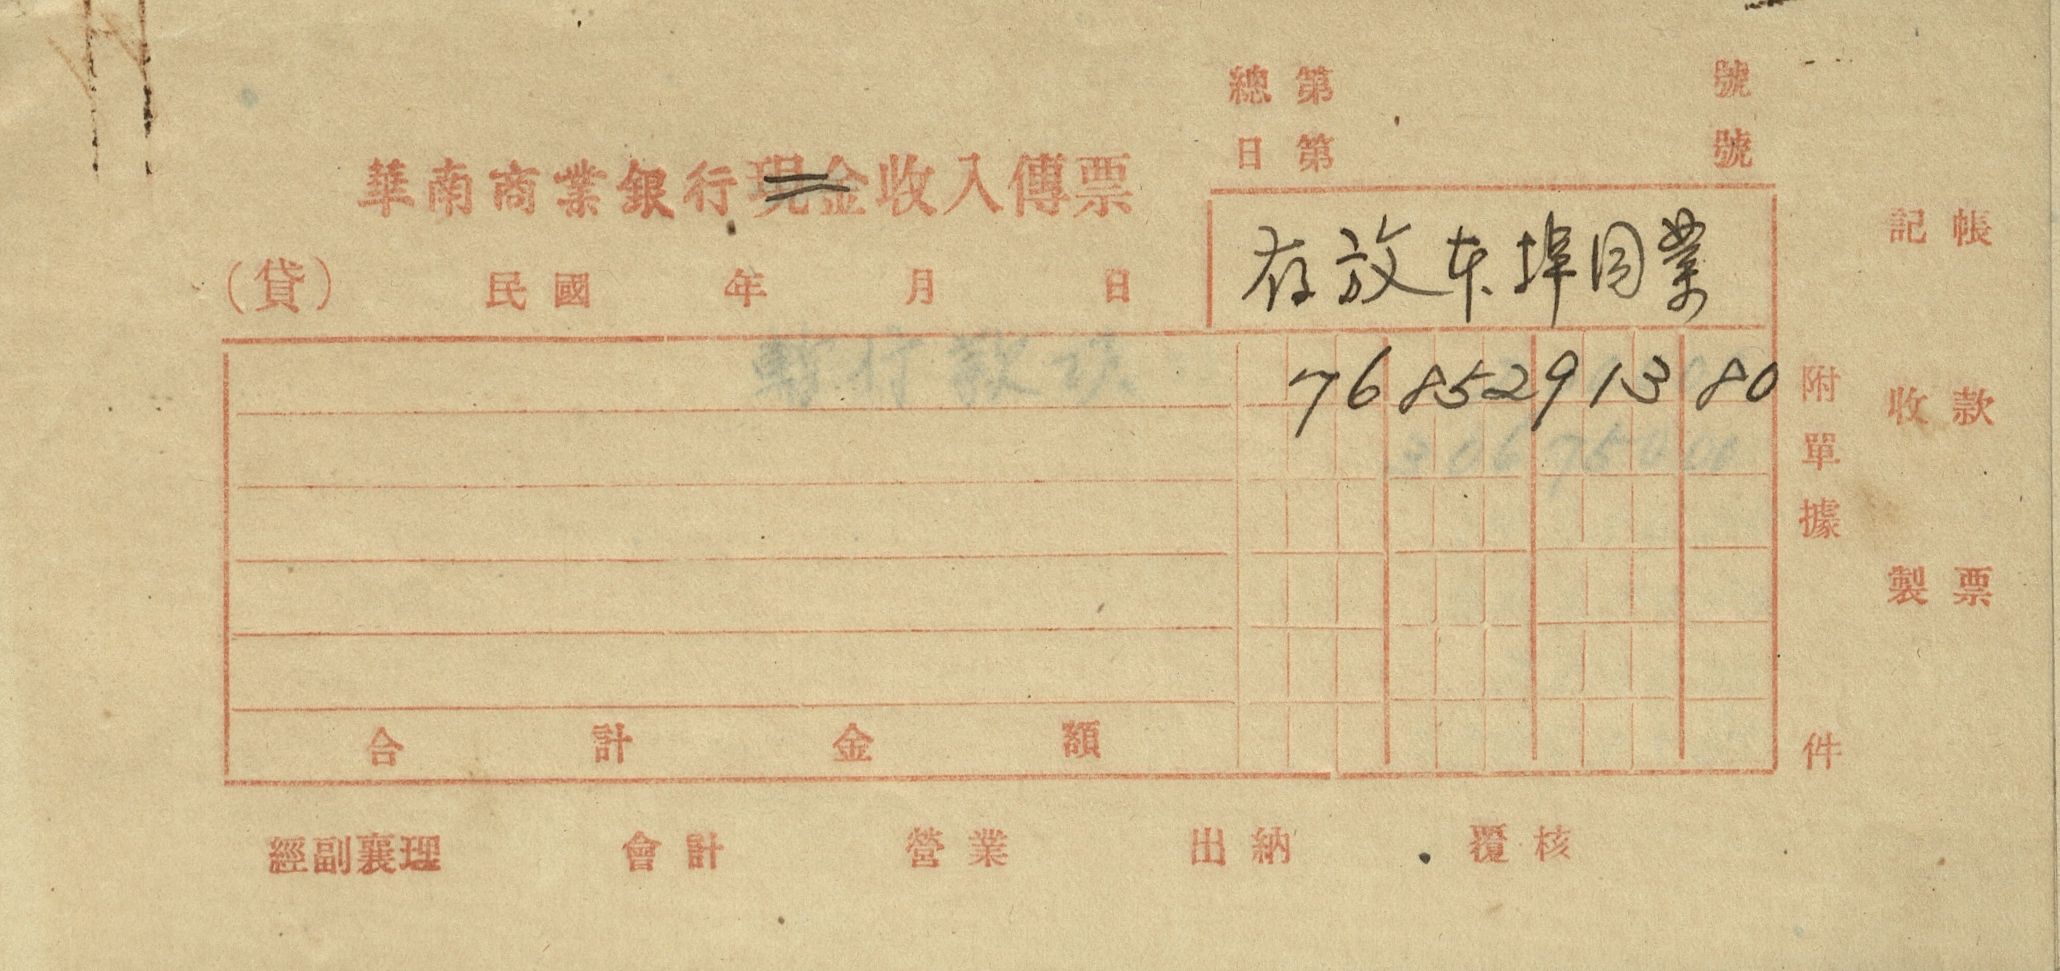 總第 號
日第 號
華南商業銀行現金收入傳票
(貸) 民國 年 月 日
存放本埠同業
記帳
暫付款項
7685291380
附單據 件
收款
製票
合計金額
經副襄理 會計 營業 出納 覆核